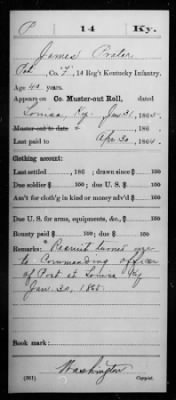 P 14 Ky.
James Prater
Pvt., Co. F, 14 Reg't Kentucky Infantry.
Age 40 years.
Appears on Co. Muster-out Roll, dated
Louisa, Ky. Jan 31, 1865.
Muster-out to date 186 .
Last paid to Apr 30, 1864.
Clothing account:
Last settled , 186 ; drawn since $ 100
Due soldier $ 100; due U. S. $ 100
Am't for cloth'g in kind or money adv'd $ 100
Due U. S. for arms, equipments, &c., $ 100
Bounty paid $ 100; due $ 100
Remarks: "Recruit turned over
to Commanding officer
of Post at Louisa Ky
Jan. 30, 1865.
Book mark:
Washington
(361) Copyist.